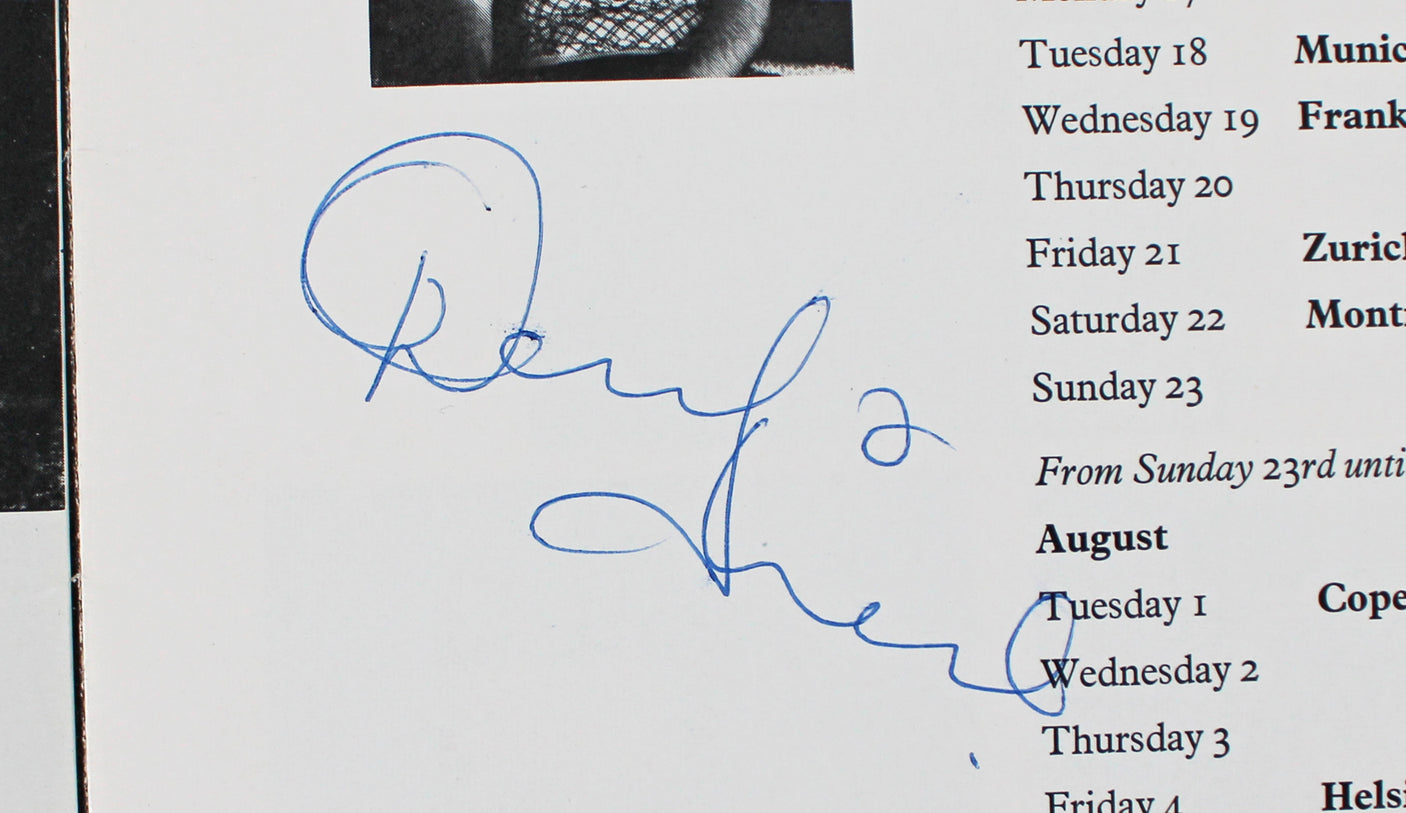 Monday 17
Tuesday 18 Munic
Wednesday 19 Frank
Thursday 20
Friday 21 Zuric
Saturday 22 Mont
Sunday 23
From Sunday 23rd unti
August
Tuesday 1 Cope
Wednesday 2
Thursday 3
Friday 4 Helsi